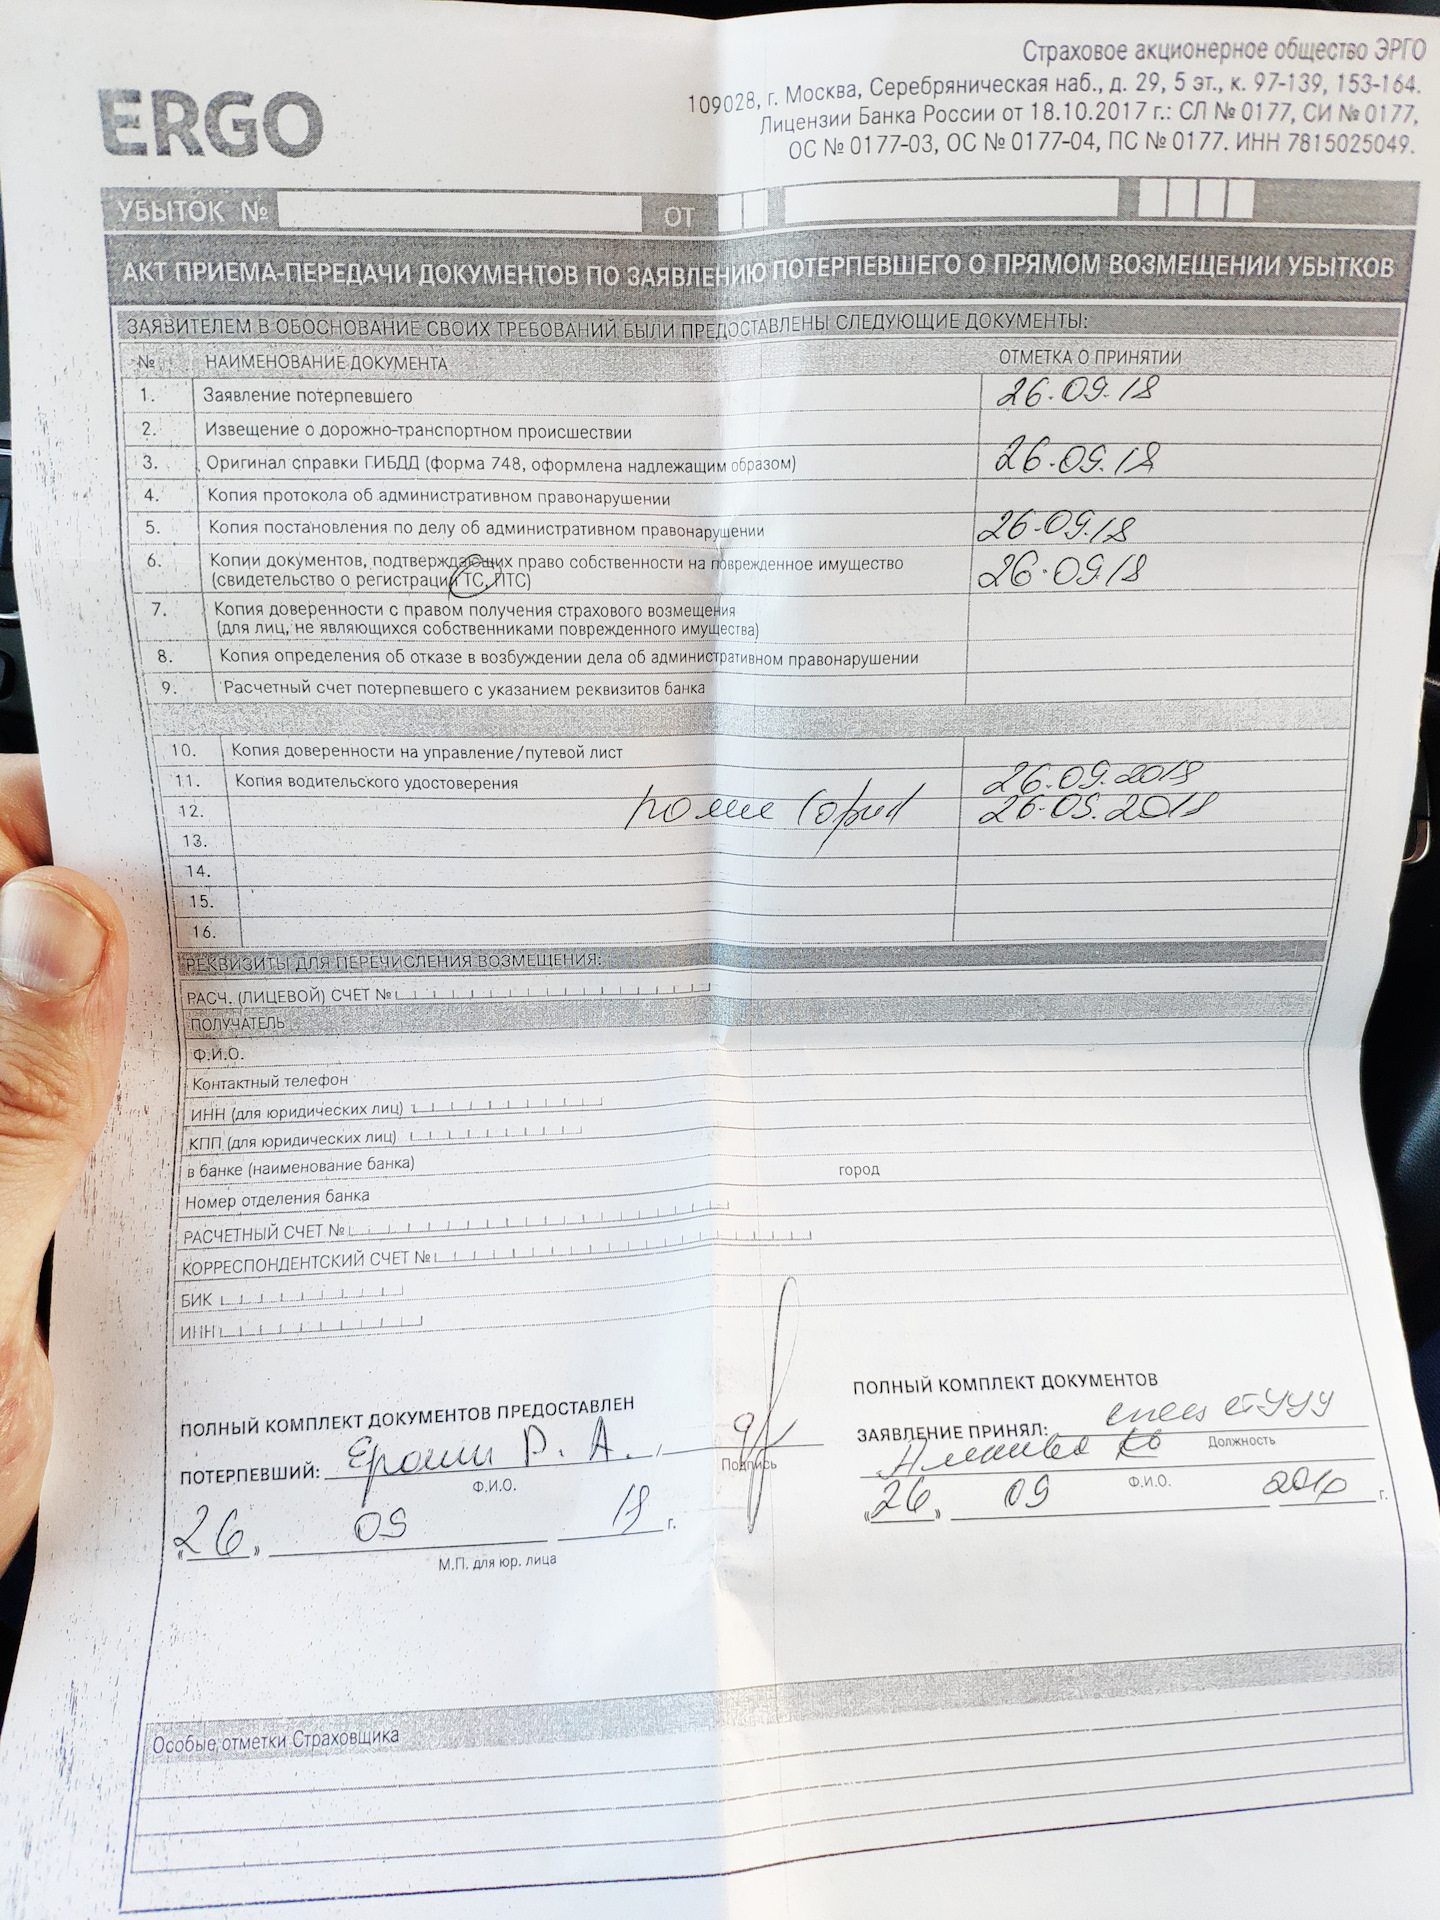 ERGO
Страховое акционерное общество ЭРГО
109028, г. Москва, Серебряническая наб., д. 29, 5 эт., к. 97-139, 153-164.
Лицензии Банка России от 18.10.2017 г.: СЛ № 0177, СИ № 0177,
ОС № 0177-03, ОС № 0177-04, ПС № 0177. ИНН 7815025049.
УБЫТОК № ОТ
АКТ ПРИЕМА-ПЕРЕДАЧИ ДОКУМЕНТОВ ПО ЗАЯВЛЕНИЮ ПОТЕРПЕВШЕГО О ПРЯМОМ ВОЗМЕЩЕНИИ УБЫТКОВ
ЗАЯВИТЕЛЕМ В ОБОСНОВАНИЕ СВОИХ ТРЕБОВАНИЙ БЫЛИ ПРЕДОСТАВЛЕНЫ СЛЕДУЮЩИЕ ДОКУМЕНТЫ:
№ НАИМЕНОВАНИЕ ДОКУМЕНТА ОТМЕТКА О ПРИНЯТИИ
1. Заявление потерпевшего 26.09.18
2. Извещение о дорожно-транспортном происшествии
3. Оригинал справки ГИБДД (форма 748, оформлена надлежащим образом) 26.09.18
4. Копия протокола об административном правонарушении
5. Копия постановления по делу об административном правонарушении 26.09.18
6. Копии документов, подтверждающих право собственности на поврежденное имущество 26.09.18
(свидетельство о регистрации ТС, ПТС)
7. Копия доверенности с правом получения страхового возмещения
(для лиц, не являющихся собственниками поврежденного имущества)
8. Копия определения об отказе в возбуждении дела об административном правонарушении
9. Расчетный счет потерпевшего с указанием реквизитов банка
10. Копия доверенности на управление/путевой лист
11. Копия водительского удостоверения 26.09.2018
12. 26.09.2018
13.
14.
15.
16.
РЕКВИЗИТЫ ДЛЯ ПЕРЕЧИСЛЕНИЯ ВОЗМЕЩЕНИЯ:
РАСЧ. (ЛИЦЕВОЙ) СЧЕТ №
ПОЛУЧАТЕЛЬ
Ф.И.О.
Контактный телефон
ИНН (для юридических лиц)
КПП (для юридических лиц)
в банке (наименование банка) город
Номер отделения банка
РАСЧЕТНЫЙ СЧЕТ №
КОРРЕСПОНДЕНТСКИЙ СЧЕТ №
БИК
ИНН
ПОЛНЫЙ КОМПЛЕКТ ДОКУМЕНТОВ ПРЕДОСТАВЛЕН
ПОТЕРПЕВШИЙ: Р. А.
Ф.И.О. Подпись
«26» 09 18 г.
М.П. для юр. лица
ПОЛНЫЙ КОМПЛЕКТ ДОКУМЕНТОВ
ЗАЯВЛЕНИЕ ПРИНЯЛ: спец
Должность
Ф.И.О.
«26» 09 2018 г.
Особые отметки Страховщика